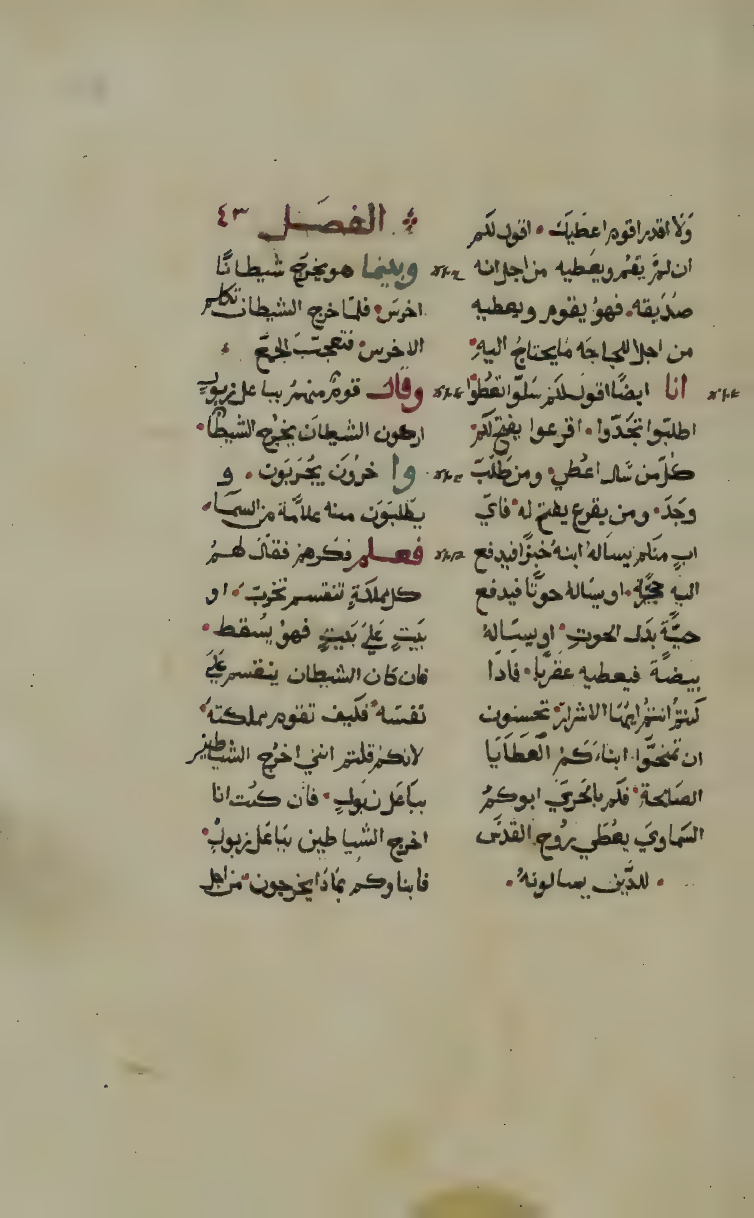 ولا اقدر اقوم اعطيك • اقول لكم
ان لم يقم ويعطيه من اجل انه
صديقه • فهو يقوم ويعطيه
من اجل اللجاجه ما يحتاج اليه •
انا ايضًا اقول لكم سلوا تعطوا
اطلبوا تجدوا • اقرعوا يفتح لكم •
كل من سال اعُطي • ومن طلب
وجد • ومن يقرع يفتح له • فاي
اب منكم يساله ابنه خبزًا فيدفع
اليه حجرًا • او يساله حوتًا فيدفع
حيَّة بدل الحوت • او يساله
بيضة فيعطيه عقربًا • فاذا
كنتم انتم ايها الاشرار • تحسنون
ان تمنحوا ابناءكم العطايا
الصالحة • فكم بالحري ابوكم
السماوي يعطي روح القدس
• للذين يسالونه •
الفصل ٤٣
وبينما هو يخرج شيطانًا
اخرس • فلما خرج الشيطان تكلم
الاخرس • فتعجبت الجمع •
وقال قوم منهم ببا عل زبول
اركون الشيطان يخرج الشيطا •
وا خرون يجربون • و
يطلبون منه علامة من السما •
فعلم فكرهم فقال لهم
كل مملكة تنقسم تخرب • او
بيت علي بيت فهو يسقط •
فان كان الشيطان ينقسم علي
نفسه • فكيف تقوم مملكته •
لانكم قلتم انني اخرج الشياطين
ببا عل زبول • فان كنت انا
اخرج الشياطين ببا عل زبول •
فابناوكم بماذا يخرجون • من اجل